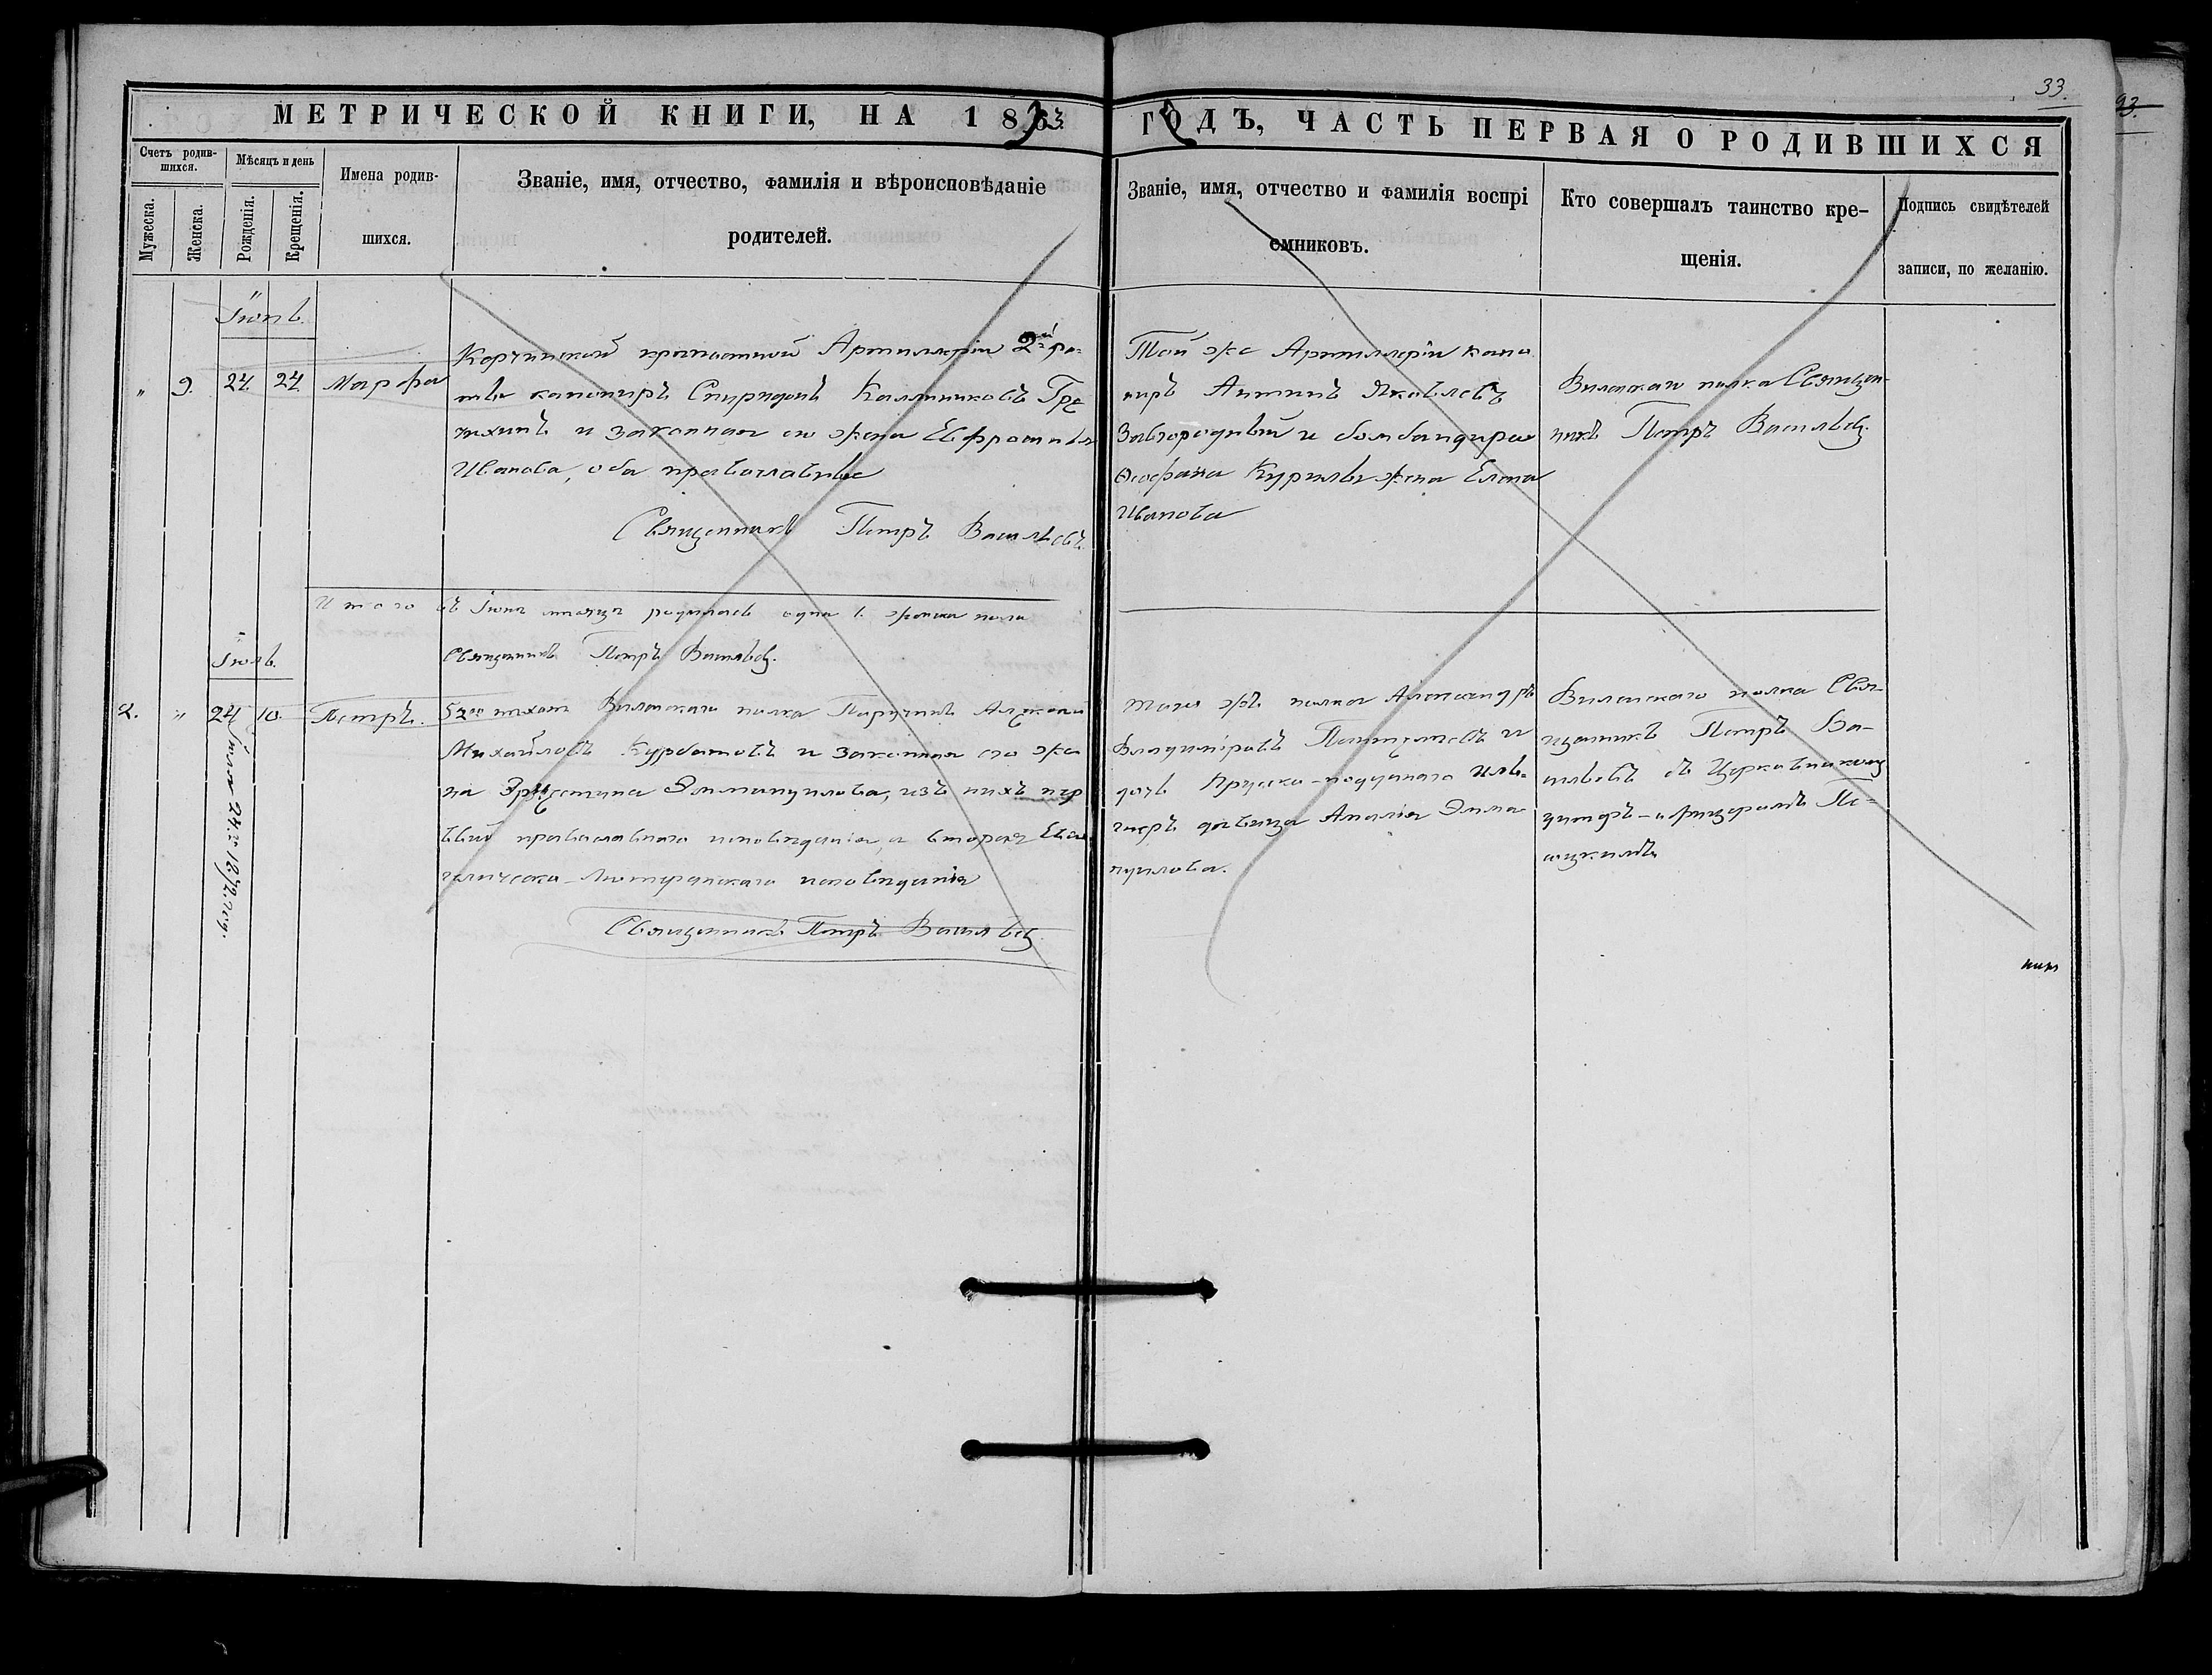 33.
93.
МЕТРИЧЕСКОЙ КНИГИ, НА 1873
ГОДЪ, ЧАСТЬ ПЕРВАЯ О РОДИВШИХСЯ
Счетъ родив-
шихся.
Мужеска.
Женска.
Мѣсяцъ и день
Рожденія.
Крещенія.
Имена родив-
шихся.
Званіе, имя, отчество, фамилія и вѣроисповѣданіе
родителей.
Званіе, имя, отчество и фамилія воспрі
емниковъ.
Кто совершалъ таинство кре-
щенія.
Подпись свидѣтелей
записи, по желанію.
Іюнь.
" 9. 24. 24. Марфа
Керчинской крѣпостной Артиллеріи 2й ро-
ты канониръ Спиридонъ Каллиниковъ
и законная его жена Евфросинья
Иванова, оба православные
Священникъ Петръ Васильевъ.
Той же Артиллеріи кано
ниръ Антипъ Яковлевъ
Завгородный и бомбандира
Ѳеофана Курилы жена Елена
Иванова
Виленскаго полка Священ-
никъ Петръ Васильевъ.
Итого въ Іюнѣ мѣсяцѣ родилась одна 1. женска пола
Священникъ Петръ Васильевъ.
Іюль.
2. " 24 10. Петръ.
Іюля 24. 1872 году.
52го пѣхот Виленскаго полка Поручикъ Алексѣй
Михайловъ Курбатовъ и законная его же
на Эрнестина Эммануилова, изъ нихъ пер
вый православнаго исповѣданія, а вторая Еван
гелическо-Лютеранскаго исповѣданія
Священникъ Петръ Васильевъ
того жъ полка Александръ
Владиміровъ и
дочь Прусско-подданаго
дѣвица Амалія Эмма
нуилова.
Виленскаго полка Свя-
щенникъ Петръ Ва-
сильевъ съ Церковникомъ
унтеръ-офицеромъ